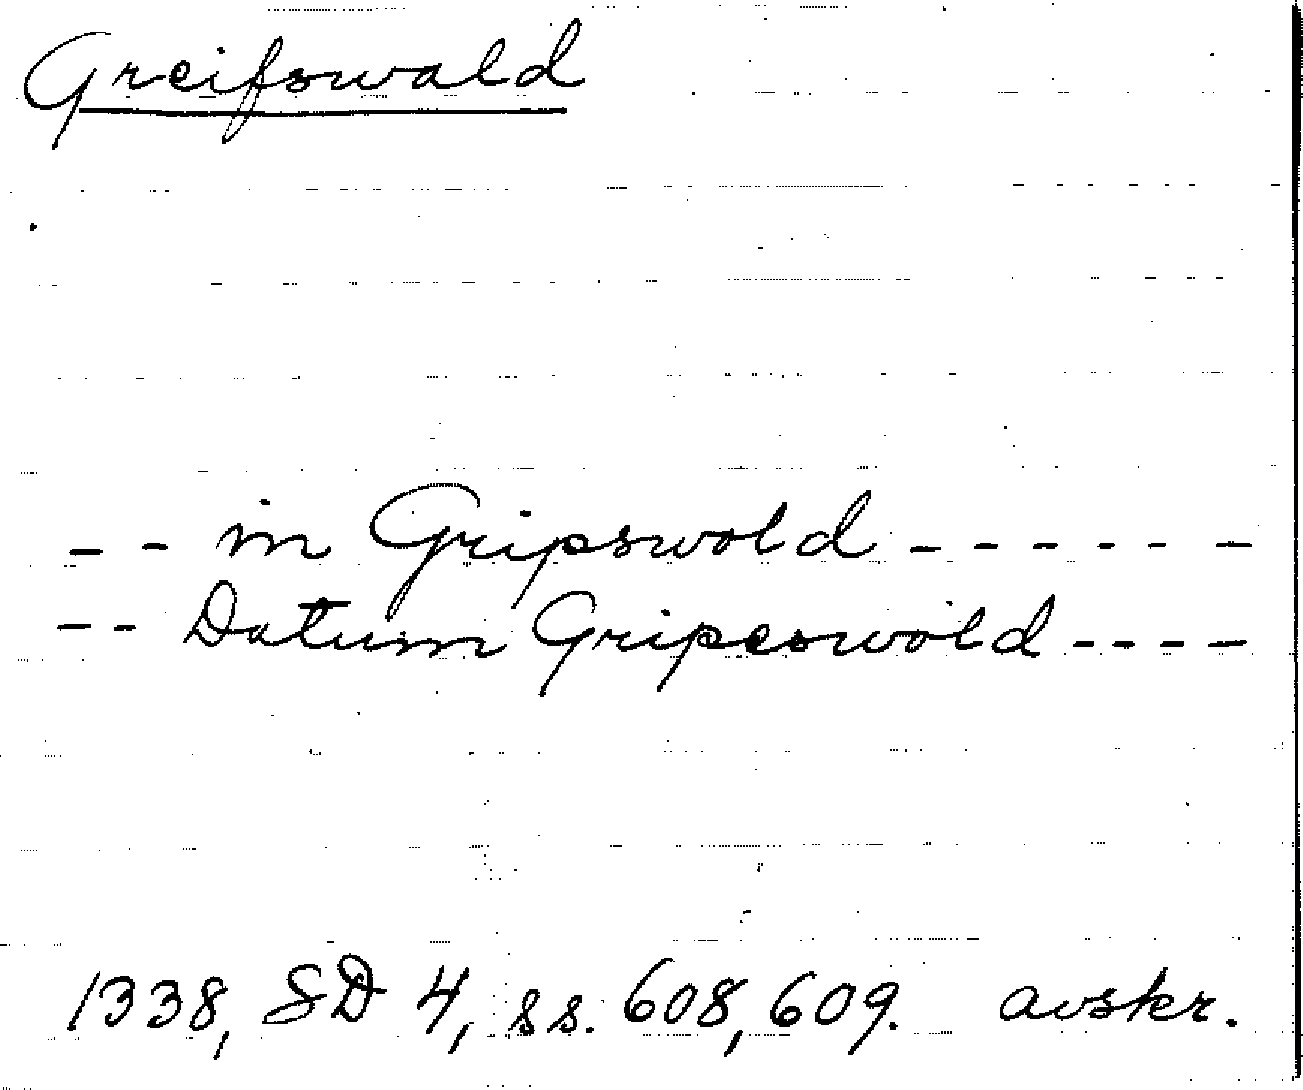 Greifswald
-- in Gripswold ------
-- Datum Gripeswold ----
1338, SD 4, ss. 608, 609. avskr.